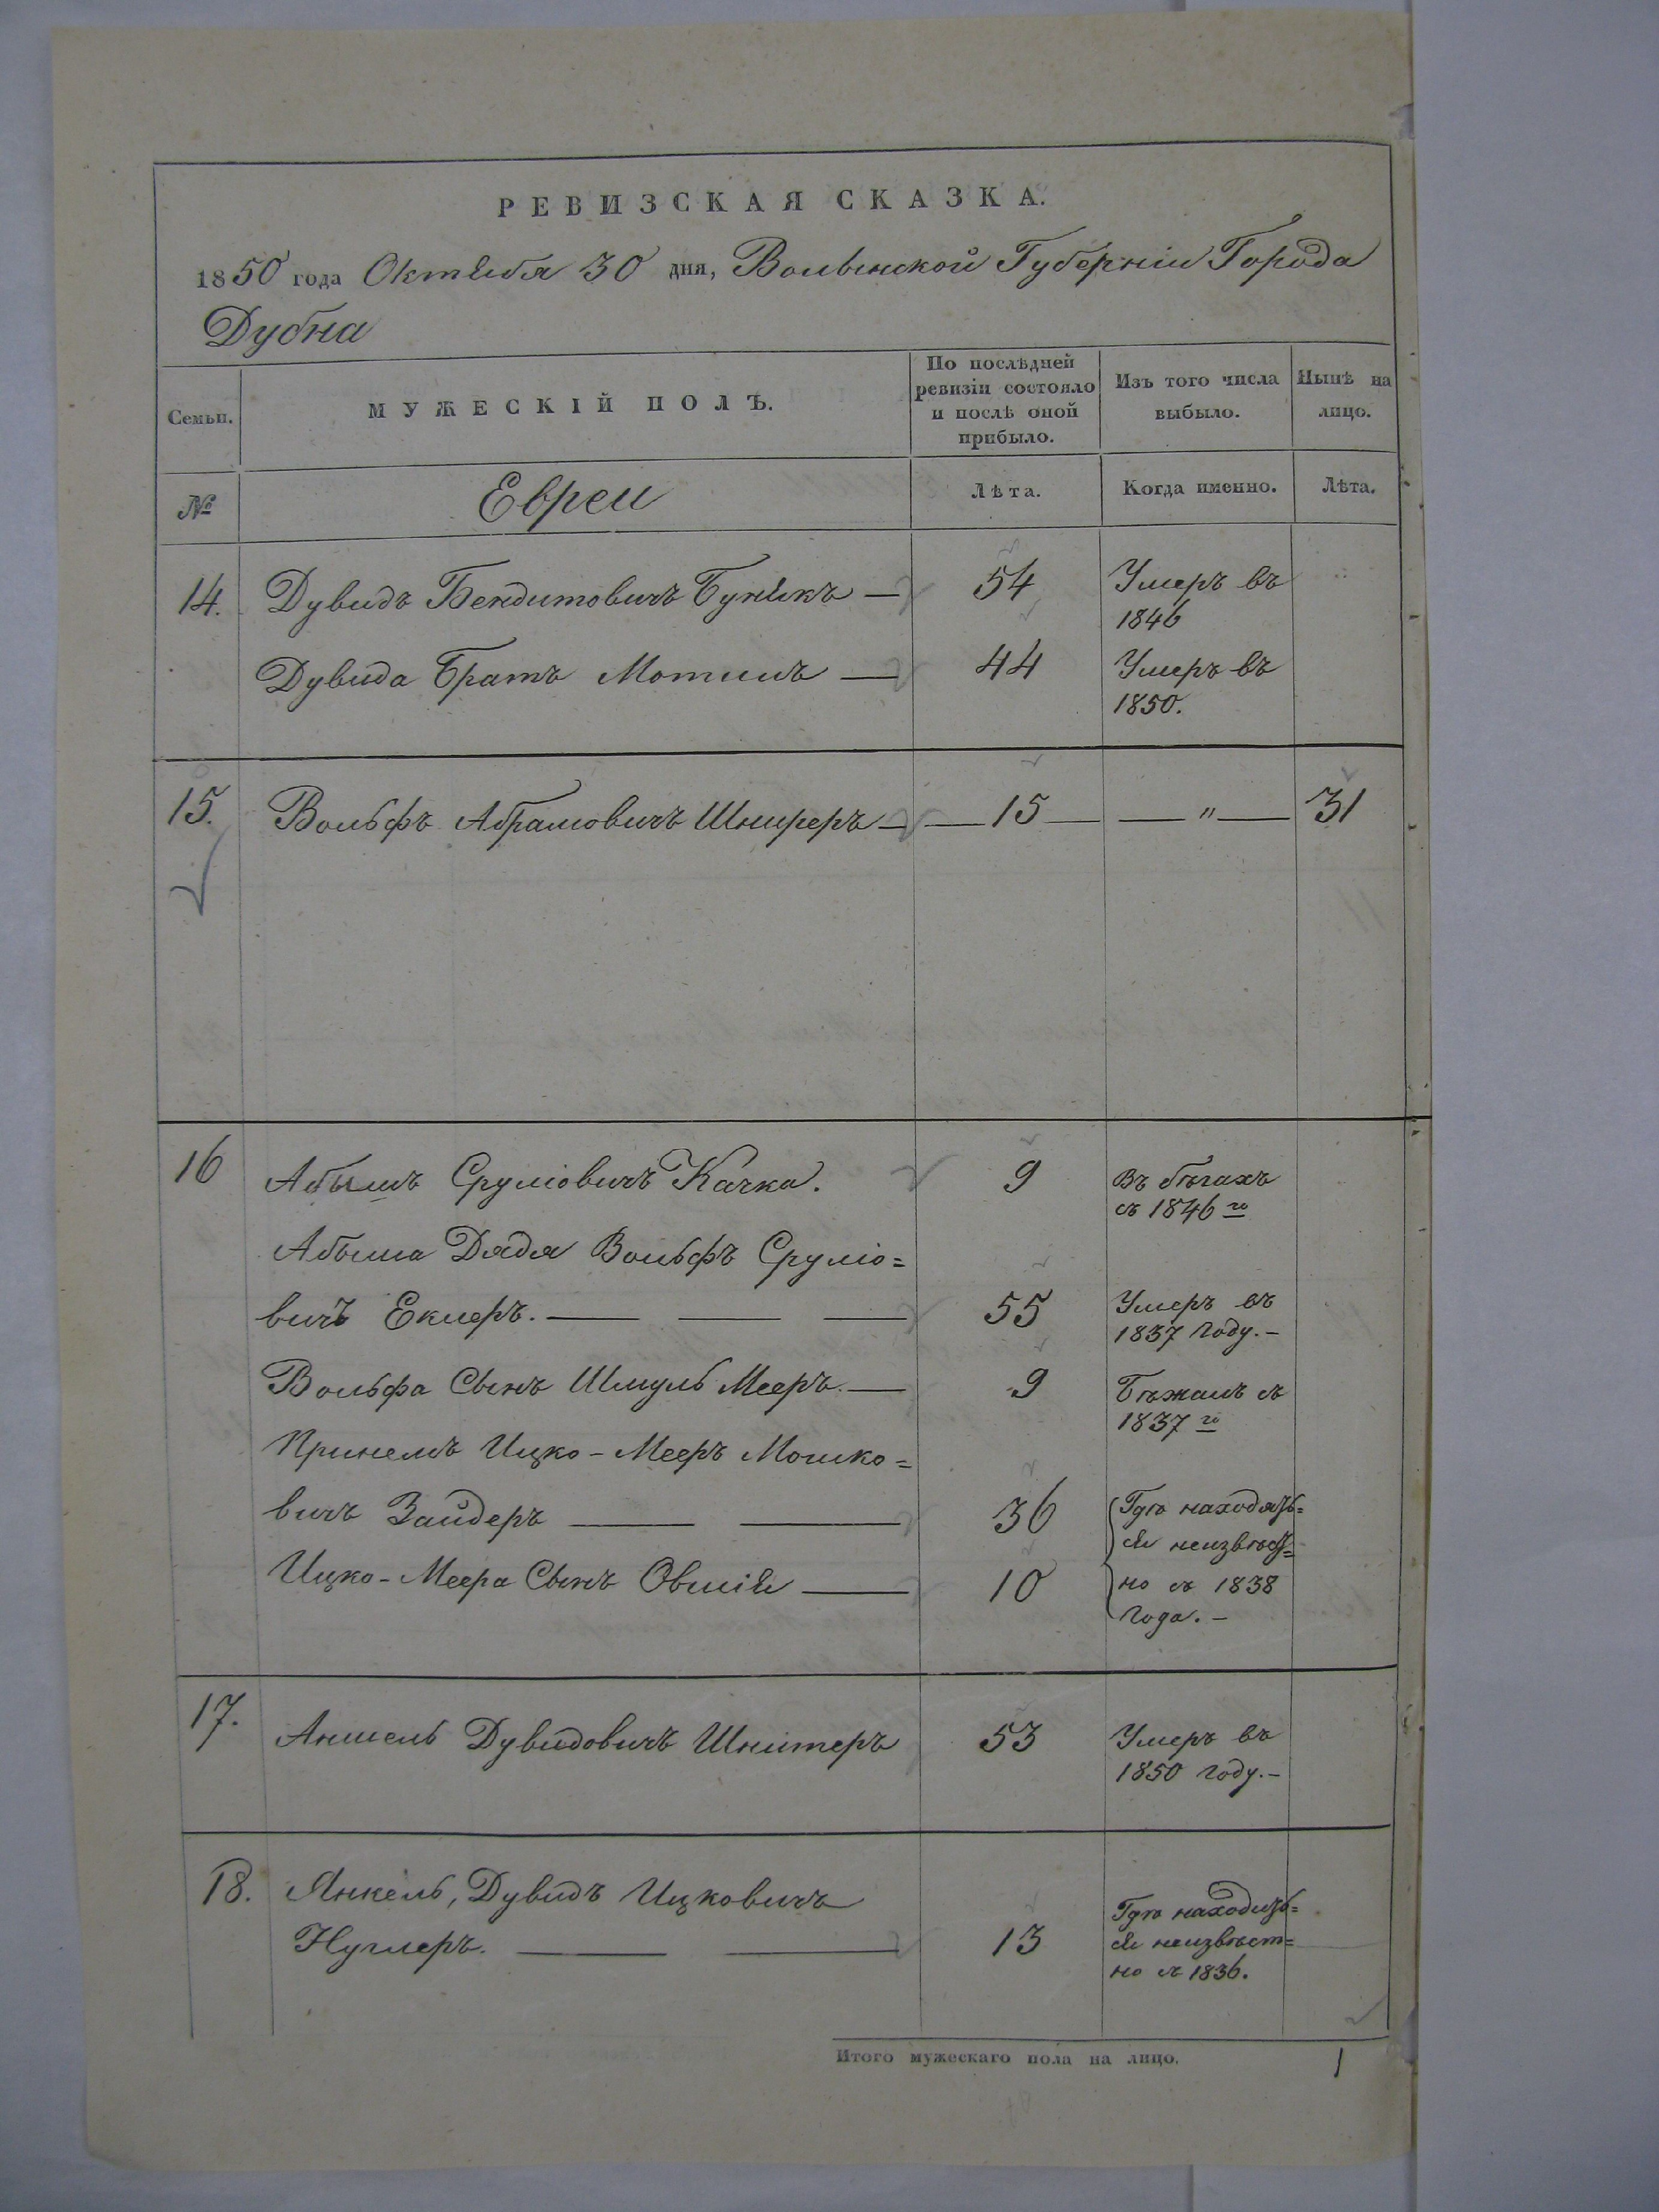 РЕВИЗСКАЯ СКАЗКА.
1850 года Октября 30 дня, Волынской Губерніи Города
Дубна
Семьи.
МУЖЕСКІЙ ПОЛЪ.
По послѣдней
ревизіи состояло
и послѣ оной
прибыло.
Изъ того числа
выбыло.
Нынѣ на
лицо.
№
Евреи
Лѣта.
Когда именно.
Лѣта.
14. Дувидъ Бендитовичъ Бунякъ — 54 Умеръ въ
1846
Дувида Братъ Мотиль — 44 Умеръ въ
1850.
15. Вольфъ Абрамовичъ Шниреръ — — 15 — — " — 31
16 Абышъ Сруліовичъ Качка. 9 Въ бѣгахъ
съ 1846 го
Абыша Дядя Вольфъ Сруліо=
вичъ Еклеръ. — — — 55 Умеръ въ
1837 году. –
Вольфа Сынъ Шмуль Мееръ. — 9 Бѣжалъ съ
1837 го
Принелъ Ицко-Мееръ Мошко=
вичъ Зайдеръ — — 36 Гдѣ находять=
ся неизвѣст=
Ицко-Меера Сынъ Овшія — 10 но съ 1838
года. –
17. Аншель Дувидовичъ Шнитеръ 53 Умеръ въ
1850 году. –
18. Янкель, Дувидъ Ицковичъ
Нуглеръ. — — 13 Гдѣ находить=
ся неизвѣст=
но съ 1836.
Итого мужескаго пола на лицо. 1